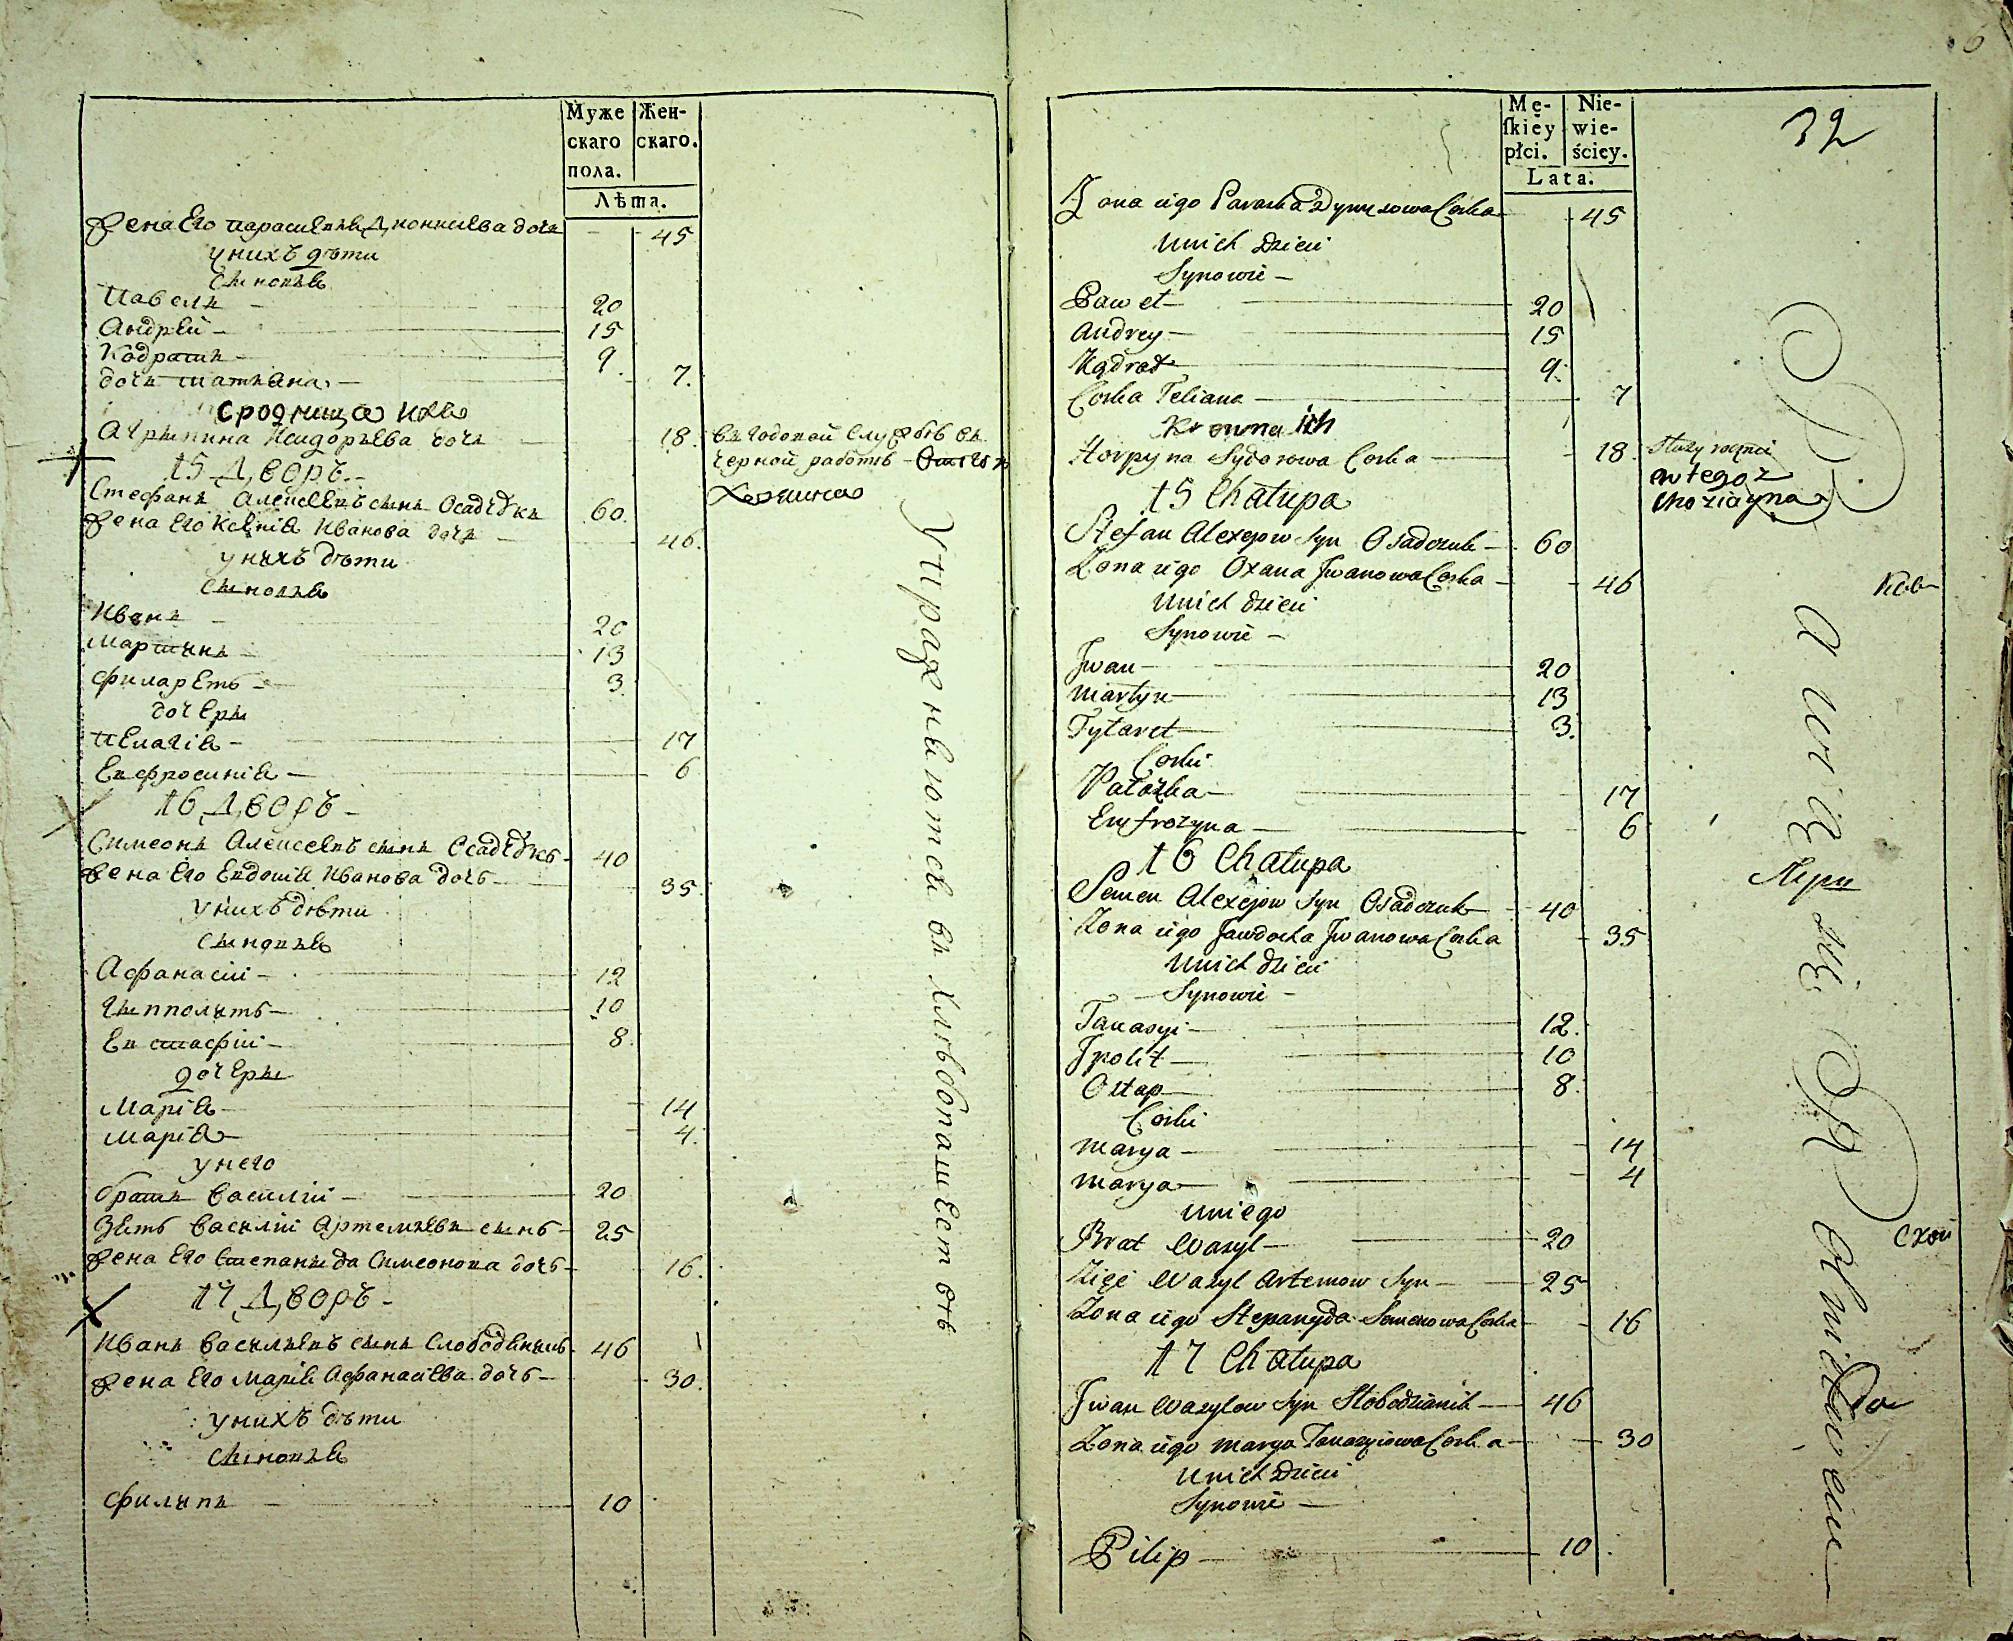 Муже
скаго
пола.
Жен-
скаго.
Лѣта.
Жена Его Парасковія Дионисіева дочь 45
у нихъ дѣти
сыновья
Павелъ — 20
Андрей — 15
Кодратъ — 9
дочь Татіана — 7.
сродница ихъ
Агрыпина Исидорьева дочь 18. въ годовой службѣ въ
черной работѣ – Отто
15 Дворъ –
Стефанъ Алексѣевъ сынъ Осадчукъ 60.
Жена Его Ксенія Иванова дочь 46.
у нихъ дѣти
сыновья
Иванъ — 20
Мартынъ — 13
Филаретъ — 3.
дочеры
Пелагія — 17
Евфросинія — 6
16 Дворъ –
Симеонъ Алексѣевъ сынъ Осадчукъ 40
Жена Его Евдокія Иванова дочь 35.
у нихъ дѣти
сыновья
Афанасій — 12
Ипполытъ — 10
Евстафій — 8.
дочеры
Марія — 14
Марія — 4.
у него
братъ Василій — 20
Зять Василій Артемьевъ сынъ 25
Жена Его Степаныда Симеонова дочь 16.
17 Дворъ –
Иванъ Васильевъ сынъ Слободянъкъ 46
Жена Его Марія Афанасіева дочь 30.
у нихъ дѣти
сыновья
Филыпъ — 10
Упражняются въ хлѣбопашествѣ
Mę-
ſkiey
płci.
Nie-
wie-
ściey.
Lata.
32
6
Żona iego Paraska Dynysowa Corka 45
U nich Dzieci
Synowie –
Paweł — 20
Andrey — 15
Kądrat — 9.
Corka Teliana — 7
Krowna ich
Horpyna Sydorowa Corka — 18. Służy roczni
w tegoż
Choziayna
15 Chałupa
Stefan Alexejow Syn Osadczuk — 60
Żona iego Oxana Jwanowa Corka — 46
U nich dzieci
Synowie –
Jwan — 20
Martyn — 13
Fyłaret — 3.
Corki
Pałażka — 17
Eufrozyna — 6
16 Chałupa
Semen Alexejow Syn Osadczuk — 40
Żona iego Jawdocha Jwanowa Corka 35
U nich dzieci
Synowie –
Tanasyi — 12.
Jpolit — 10
Ostap — 8.
Corki
Marya — 14
Marya — 4
U niego
Brat Wasyl — 20
Zięć Wasyl Artemow Syn — 25
Żona iego Stepanyda Semenowa Corka 16
17 Chałupa
Jwan Wasylow Syn Słobodzianik — 46
Żona iego Marya Tanasyiowa Corka — 30
U nich Dzieci
Synowie —
Pilip — 10